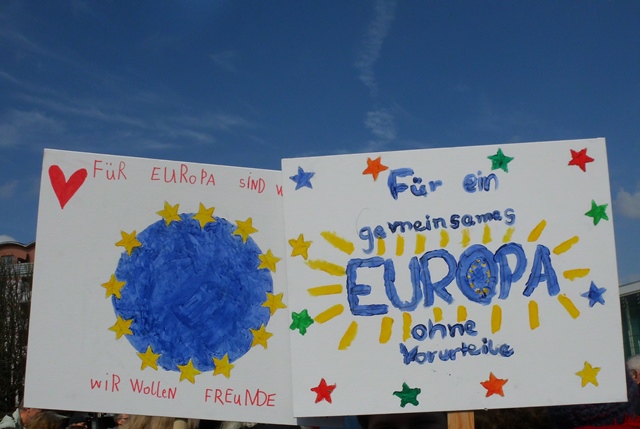 FÜR EUROPA SIND
WIR WOLLEN FREUNDE
Für ein
gemeinsames
EUROPA
ohne
Vorurteile